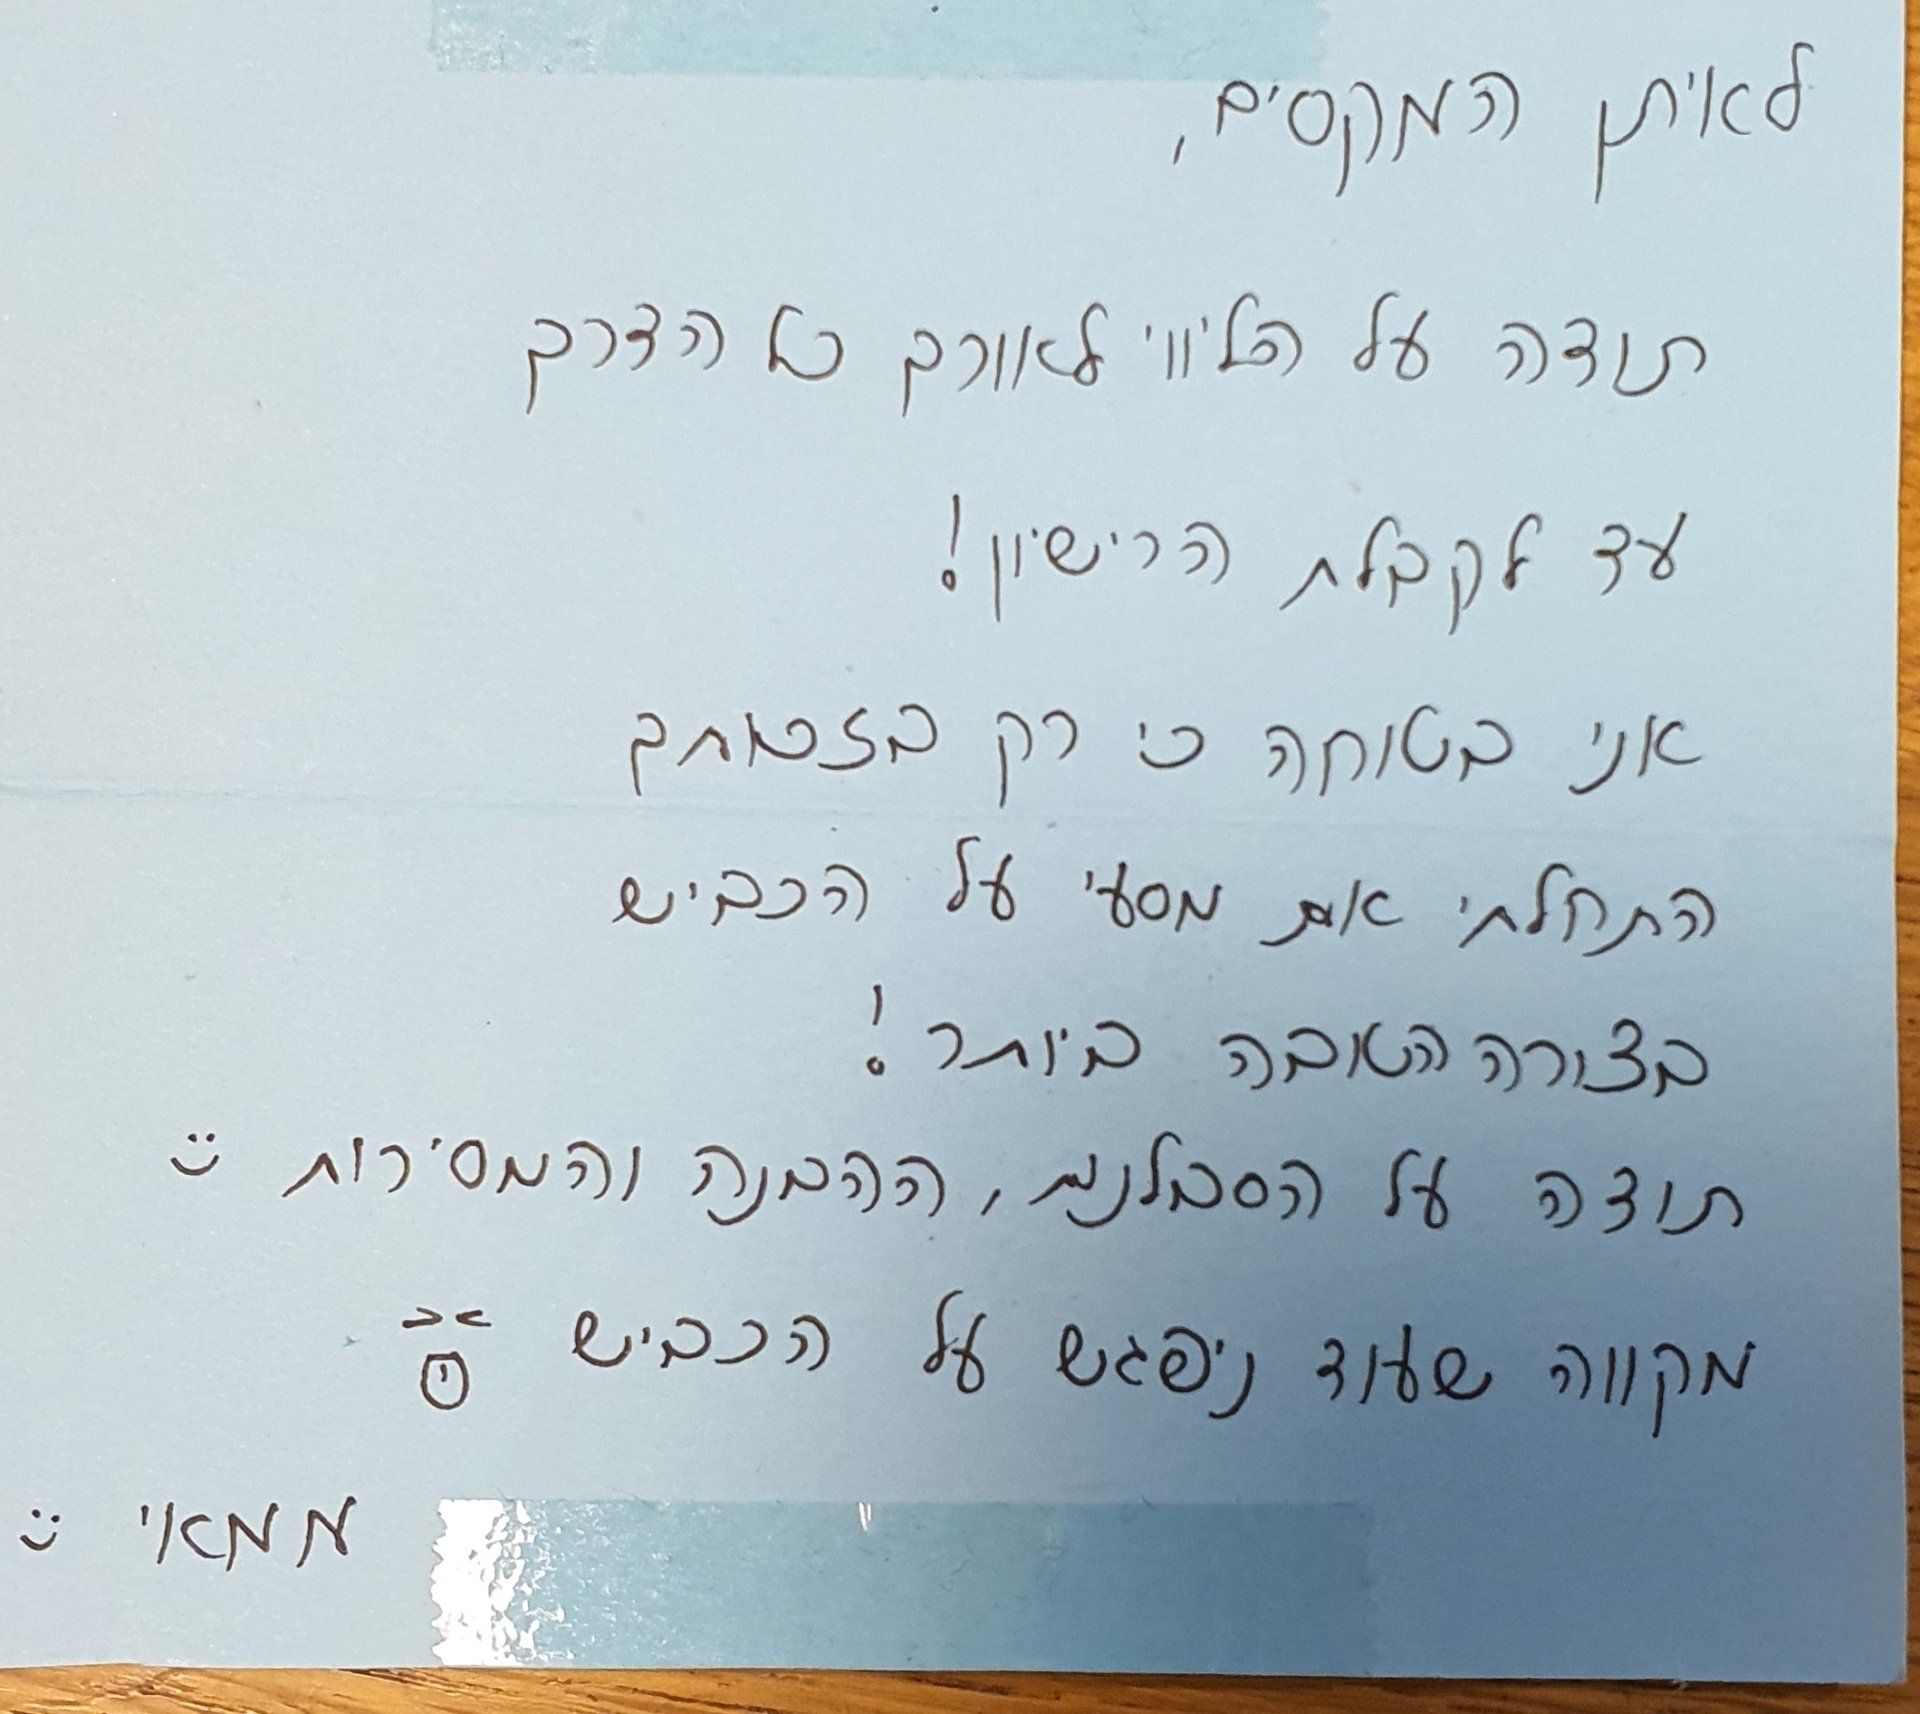 לאיתן המקסים,
תודה על הליווי לאורך כל הדרך
עד לקבלת הרישיון!
אני בטוחה כי רק בזכותך
התחלתי את מסעי על הכביש
בצורה הטובה ביותר!
תודה על הסבלנות, ההבנה והמסירות :)
מקווה שעוד ניפגש על הכביש
ממאי :)